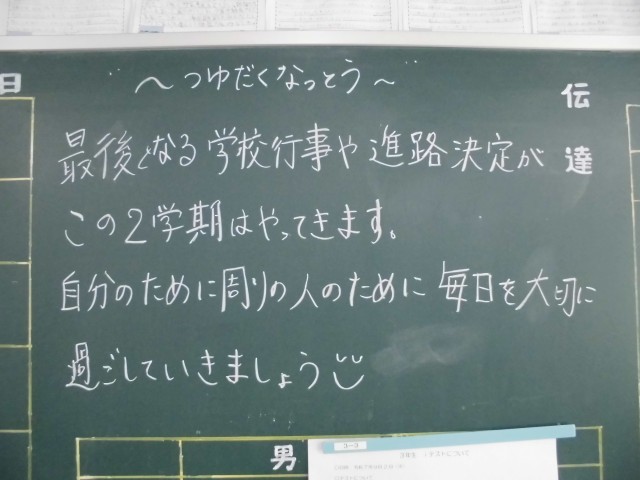 "～つゆだくなっとう～"
最後となる学校行事や進路決定が
この2学期はやってきます。
自分のために周りの人のために毎日を大切に
過ごしていきましょう
伝達
日
男